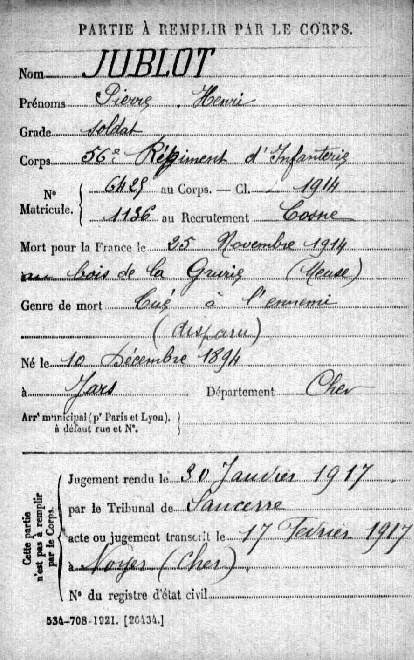 PARTIE À REMPLIR PAR LE CORPS.
Nom JUBLOT
Prénoms Pierre Henri
Grade soldat
Corps 56e Régiment d'Infanterie
N° Matricule. { 6425 au Corps. — Cl. 1914
1136 au Recrutement Cosne
Mort pour la France le 25 Novembre 1914
au bois de la Grurie (Meuse)
Genre de mort Tué à l'ennemi
(disparu)
Né le 10 Décembre 1894
à Jars Département Cher
Arrt municipal (pr Paris et Lyon), à défaut rue et N°.
Cette partie n'est pas à remplir par le Corps.
Jugement rendu le 30 Janvier 1917
par le Tribunal de Sancerre
acte ou jugement transcrit le 17 Février 1917
à Noyer (Cher)
N° du registre d'état civil
534-708-1921. [26434.]